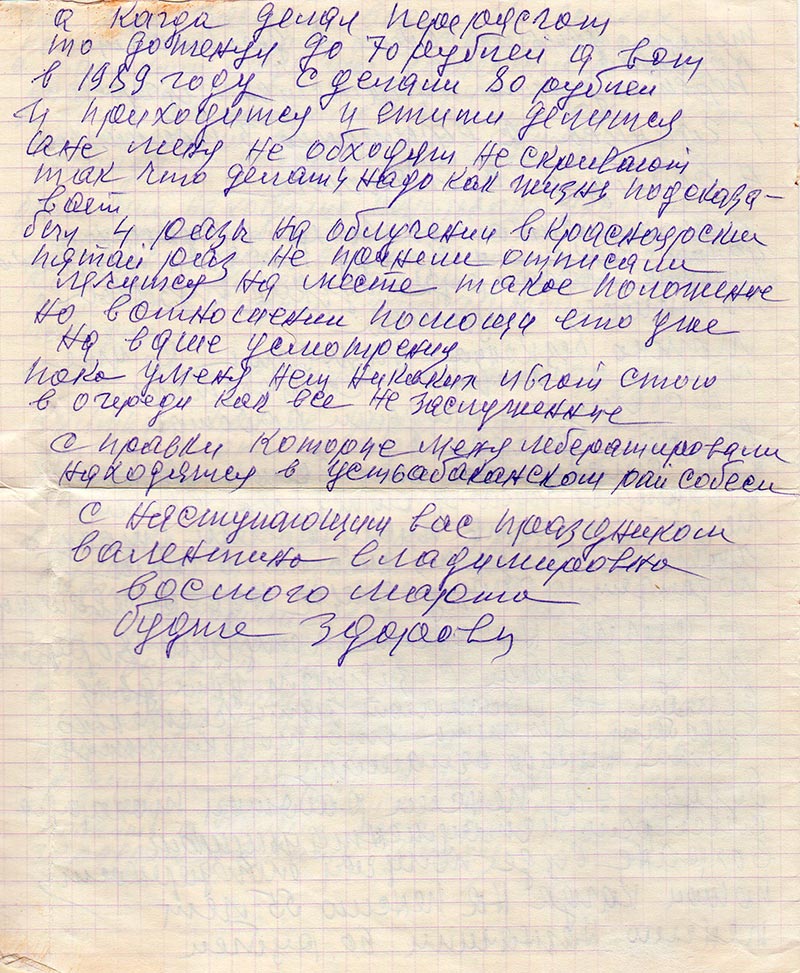 а кагда делал перерасчот
то дотенул до 70 рублей а вот
в 1989 году сделали 80 рублей
и приходится и етими делится
ане меня не обходут не скривают
так что делать надо как жизнь подсказа-
вает
бил 4 раза на облучении в Краснодарски
пятай раз не приняли отписали
лечится на месте такое положение
но вотношении помощи ето уже
на ваше усмотрения
пока у меня нет никаких льгот стою
в очереди как все не заслуженние
справки которие меня лебератировали
находятся в устьабаканском рай собеси
с наступающим вас праздником
валентина владимировна
восмого марта
будте здорови